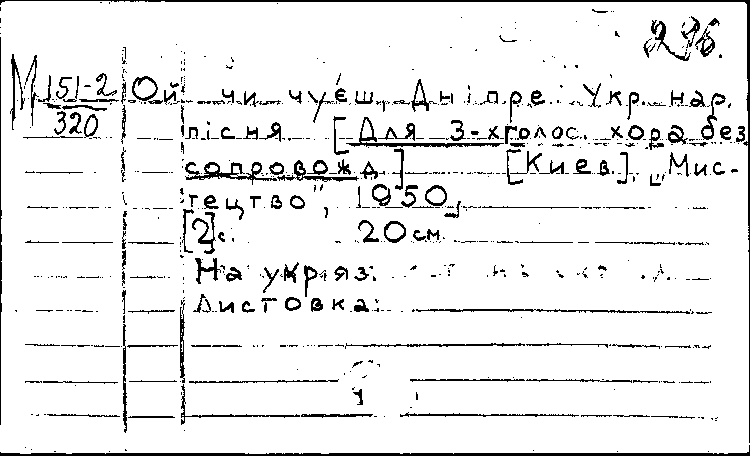 296.
М 151-2
320
Ой чи чуєш, Дніпре. Укр. нар.
пісня. [Для 3-хголос. хора без
сопровожд.] [Киев.], "Мис-
тецтво", 1950,
[2]с. 20 см.
На укр яз.
Листовка.